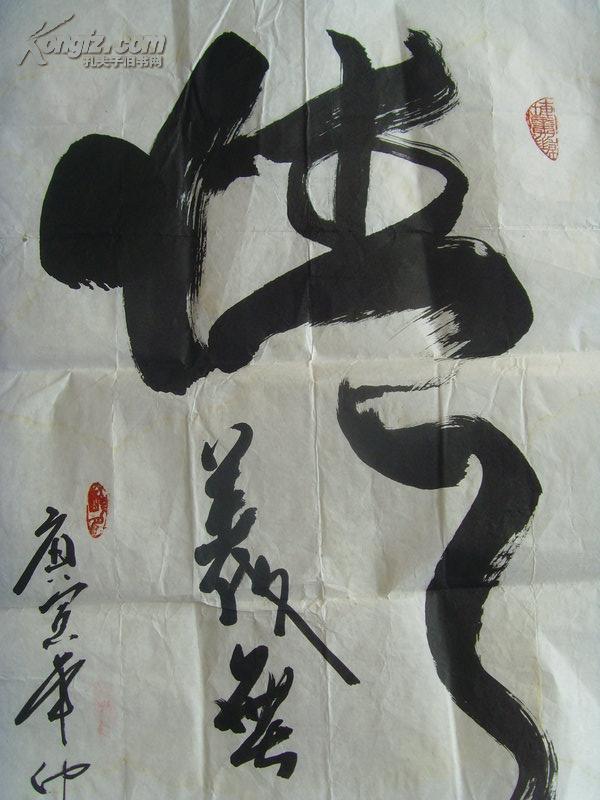 Kongfz.com
孔夫子旧书网
情
義無
庚寅年仲